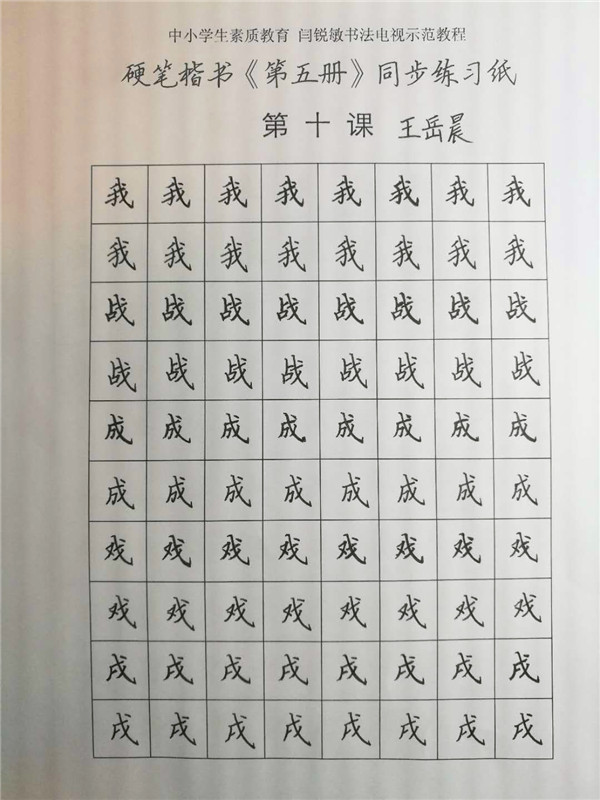 中小学生素质教育 闫锐敏书法电视示范教程
硬笔楷书《第五册》同步练习纸
第十课 王岳晨
我 我 我 我 我 我 我 我
我 我 我 我 我 我 我 我
战 战 战 战 战 战 战 战
战 战 战 战 战 战 战 战
成 成 成 成 成 成 成 成
成 成 成 成 成 成 成 成
戏 戏 戏 戏 戏 戏 戏 戏
戏 戏 戏 戏 戏 戏 戏 戏
戌 戌 戌 戌 戌 戌 戌 戌
戌 戌 戌 戌 戌 戌 戌 戌